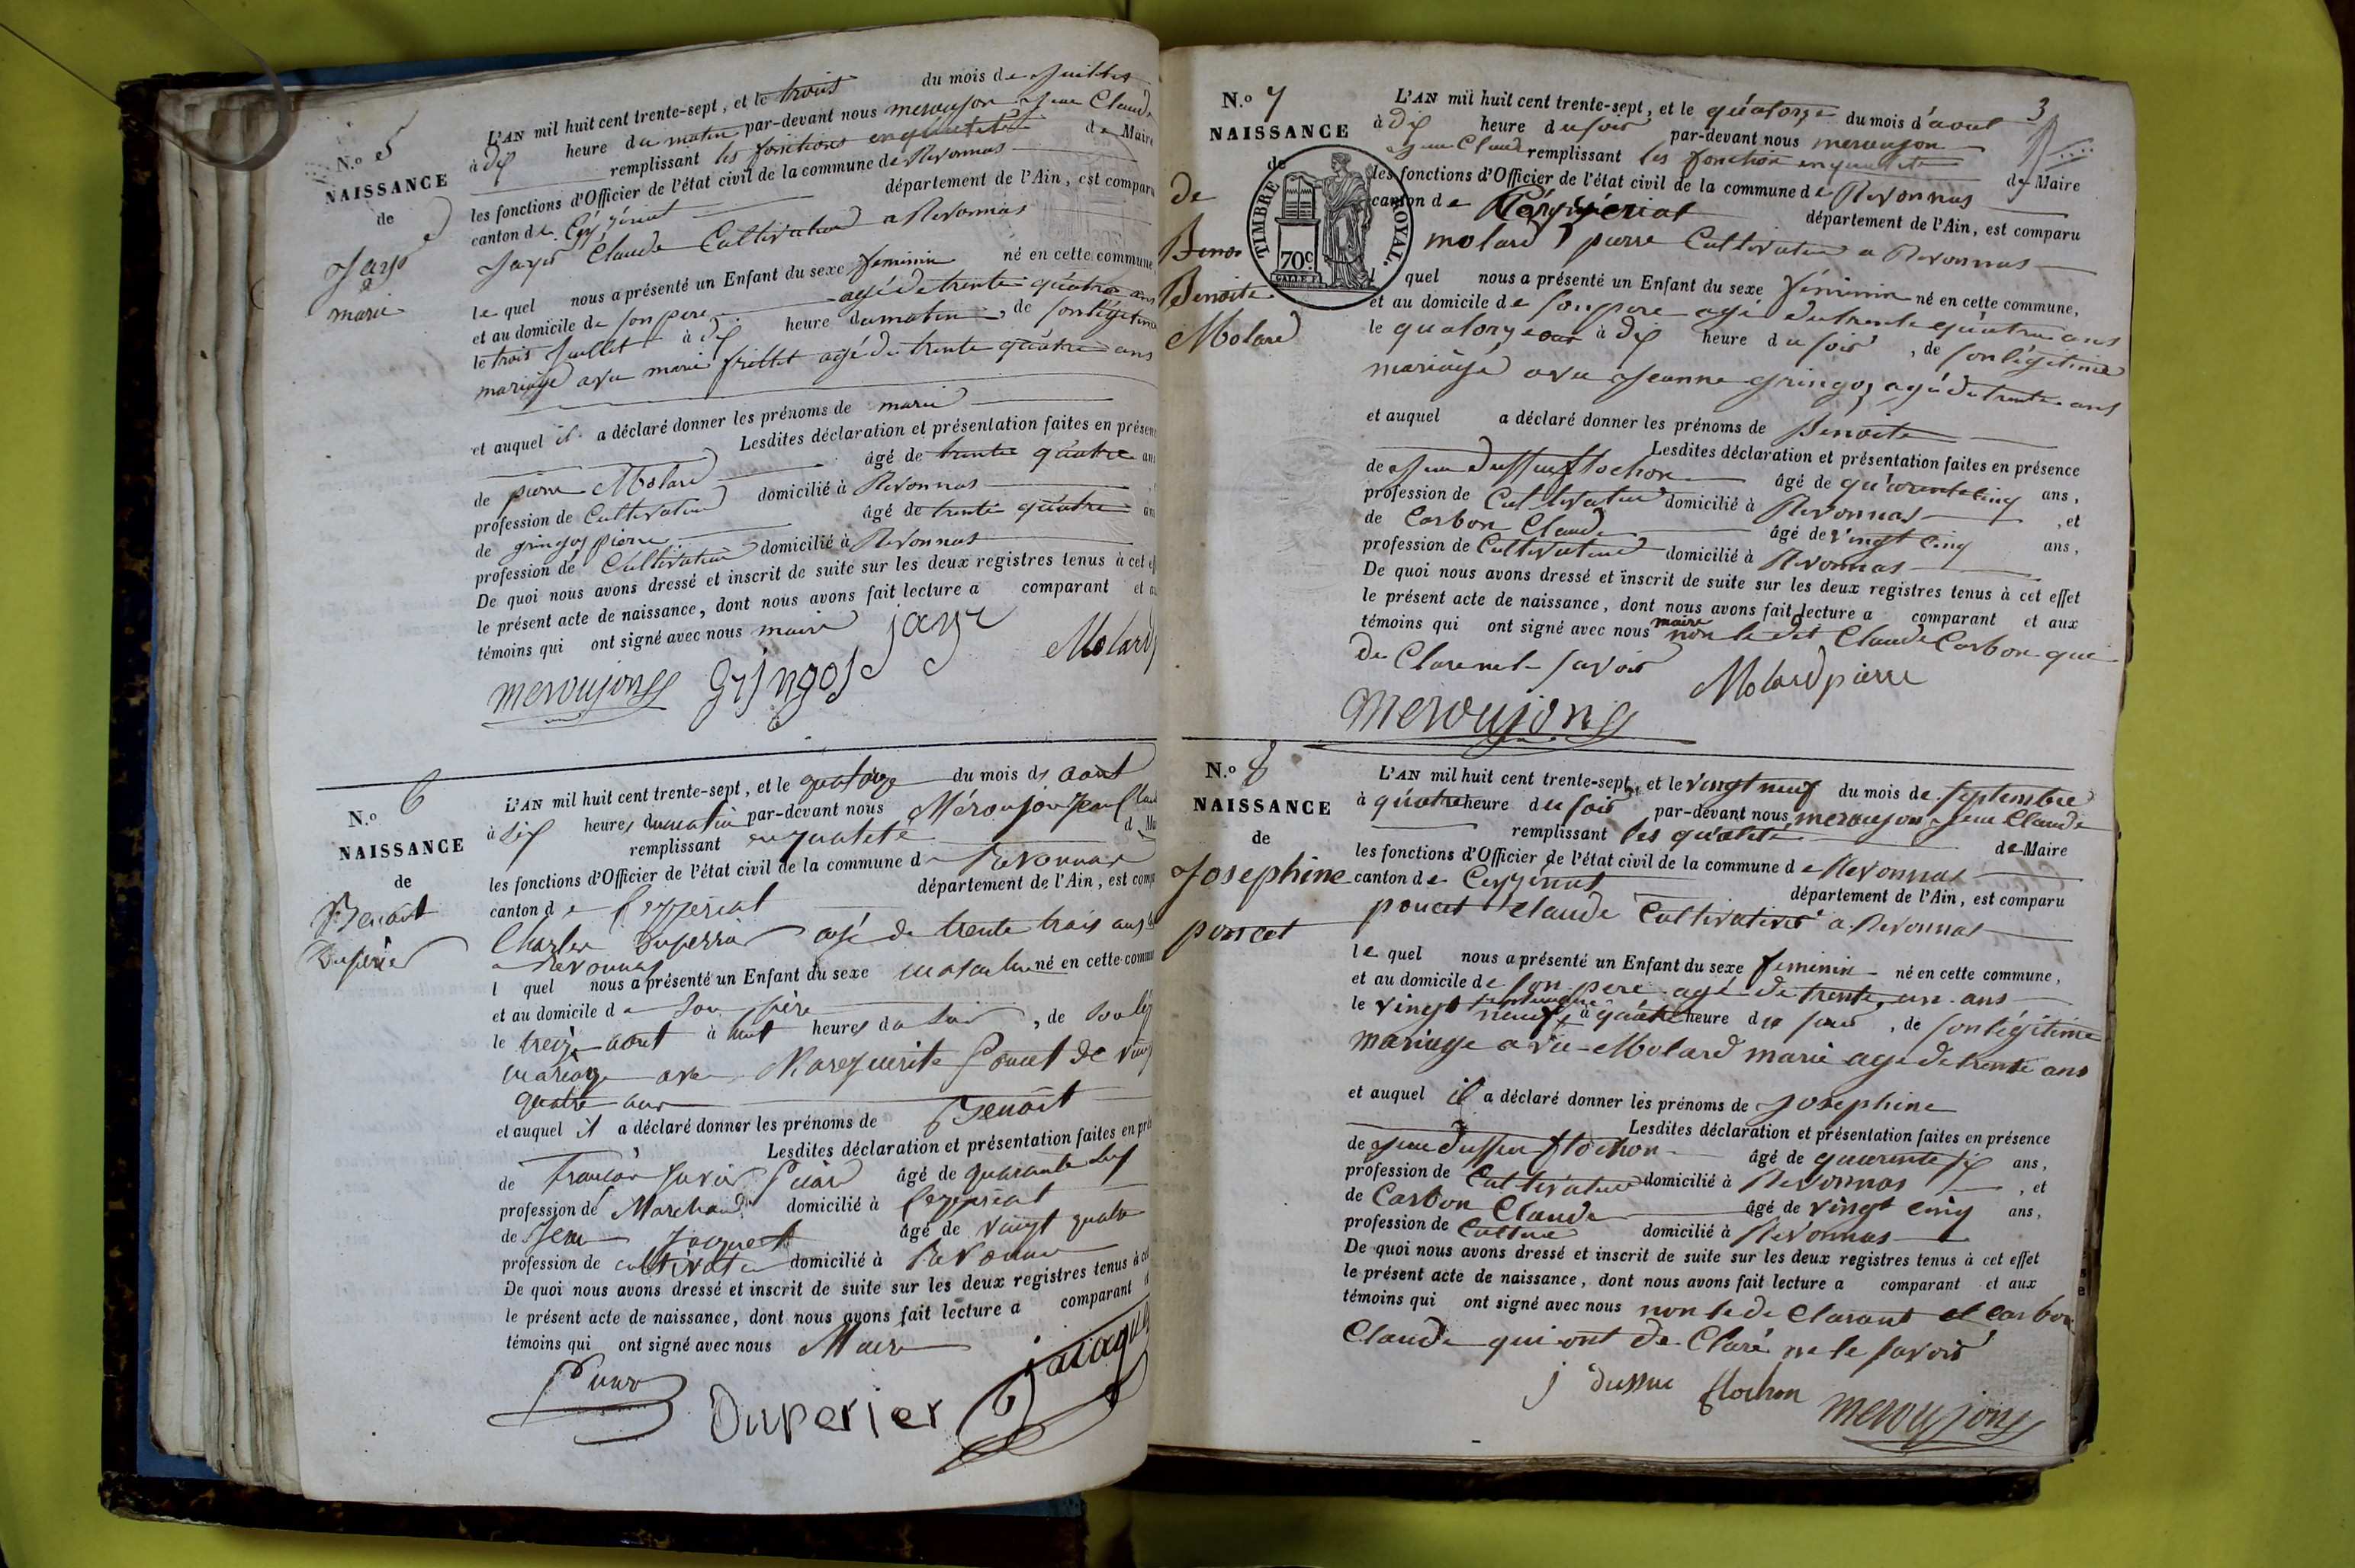 N.o 5
NAISSANCE
de
Jayr
marie
L'AN mil huit cent trente-sept, et le trois du mois de Juillet
à dix heure du matin par-devant nous meroujon Jean Claude
remplissant les fonctions en qualité de Maire
les fonctions d'Officier de l'état civil de la commune de Revonnas
canton de Ceyzériat département de l'Ain, est comparu
Jayr Claude Cultivateur a Revonnas
le quel nous a présenté un Enfant du sexe feminin né en cette commune,
et au domicile de son pere agé de trente quatre ans
le trois Juillet à dix heure du matin, de son légitime
mariage avec marie frillet agé de trente quatre ans
et auquel il a déclaré donner les prénoms de marie
Lesdites déclaration et présentation faites en présen
de pierre Molard âgé de trente quatre ans
profession de Cultivateur domicilié à Revonnas
de gringoz pierre âgé de trente quatre an
profession de Cultivateur domicilié à Revonnas
De quoi nous avons dressé et inscrit de suite sur les deux registres tenus à cet ef
le présent acte de naissance, dont nous avons fait lecture a comparant et a
témoins qui ont signé avec nous maire jayr
meroujon Gringos Molard
N.o 6
NAISSANCE
de
Benoit
Duperier
L'AN mil huit cent trente-sept, et le quatorze du mois d août
à dix heures du matin par-devant nous Méroujon Jean Clau
remplissant en qualité d Ma
les fonctions d'Officier de l'état civil de la commune de Revonnas
canton de Ceyzeriat département de l'Ain, est comp
Charles Duperrier agé de trente trois ans
a Revonnas
l quel nous a présenté un Enfant du sexe masculin né en cette commu
et au domicile de Son père
le treize aout à huit heures du Soir, de Son lég
mariage avec Marguerite Poncet de vingt
quatre ans
et auquel il a déclaré donner les prénoms de Benoit
Lesdites déclaration et présentation faites en pré
de âgé de quarante
profession de Marchand domicilié à Ceyzeriat
de Jean Jaquet âgé de vingt quatre
profession de cultivateur domicilié à Revonnas
De quoi nous avons dressé et inscrit de suite sur les deux registres tenus à cet
le présent acte de naissance, dont nous avons fait lecture a comparant et
témoins qui ont signé avec nous Maire
Duperier
3
N.o 7
NAISSANCE
de
de
Benoite
Molard
TIMBRE ROYAL.
70c
L'AN mil huit cent trente-sept, et le quatorze du mois d'aout
à dix heure du soir par-devant nous meroujon
Jean Claude remplissant les fonction en qualité de Maire
les fonctions d'Officier de l'état civil de la commune de Revonnas
canton de Ceyzeriat département de l'Ain, est comparu
molard pierre Cultivateur a Revonnas
l quel nous a présenté un Enfant du sexe féminin né en cette commune,
et au domicile de son pere agé de trente quatre ans
le quatorze aout à dix heure du soir, de son légitime
mariage avec Jeanne gringoz agé de trente ans
et auquel a déclaré donner les prénoms de Benoite
Lesdites déclaration et présentation faites en présence
de Jean Dussuc flochon âgé de quarente cinq ans,
profession de Cultivateur domicilié à Revonnas, et
de Carbon Claude âgé de vingt cinq ans,
profession de Cultivateur domicilié à Revonnas
De quoi nous avons dressé et inscrit de suite sur les deux registres tenus à cet effet
le présent acte de naissance, dont nous avons fait lecture a comparant et aux
témoins qui ont signé avec nous maire non le dit Claude Carbon qui
de Clare ne le savoir
Molard pierre
meroujon
N.o 8
NAISSANCE
de
Josephine
poncet
L'AN mil huit cent trente-sept, et le vingt neuf du mois de septembre
à quatre heure du soir par-devant nous meroujon Jean Claude
remplissant les qualité de Maire
les fonctions d'Officier de l'état civil de la commune de Revonnas
canton de Ceyzériat département de l'Ain, est comparu
poncet Claude Cultivateur a Revonnas
le quel nous a présenté un Enfant du sexe feminin né en cette commune,
et au domicile de son pere agé de trente un ans
le vingt neuf septembre à quatre heure du soir, de son légitime
mariage avec Molard marie agé de trente ans
et auquel il a déclaré donner les prénoms de Josephine
Lesdites déclaration et présentation faites en présence
de Jean Dussuc flochon âgé de quarente six ans,
profession de Cultivateur domicilié à Revonnas, et
de Carbon Claude âgé de vingt cinq ans,
profession de Culture domicilié à Revonnas
De quoi nous avons dressé et inscrit de suite sur les deux registres tenus à cet effet
le présent acte de naissance, dont nous avons fait lecture a comparant et aux
témoins qui ont signé avec nous non le de Clarant et Carbon
Claude qui ont de Claré ne le savoir
j dussuc flochon meroujon